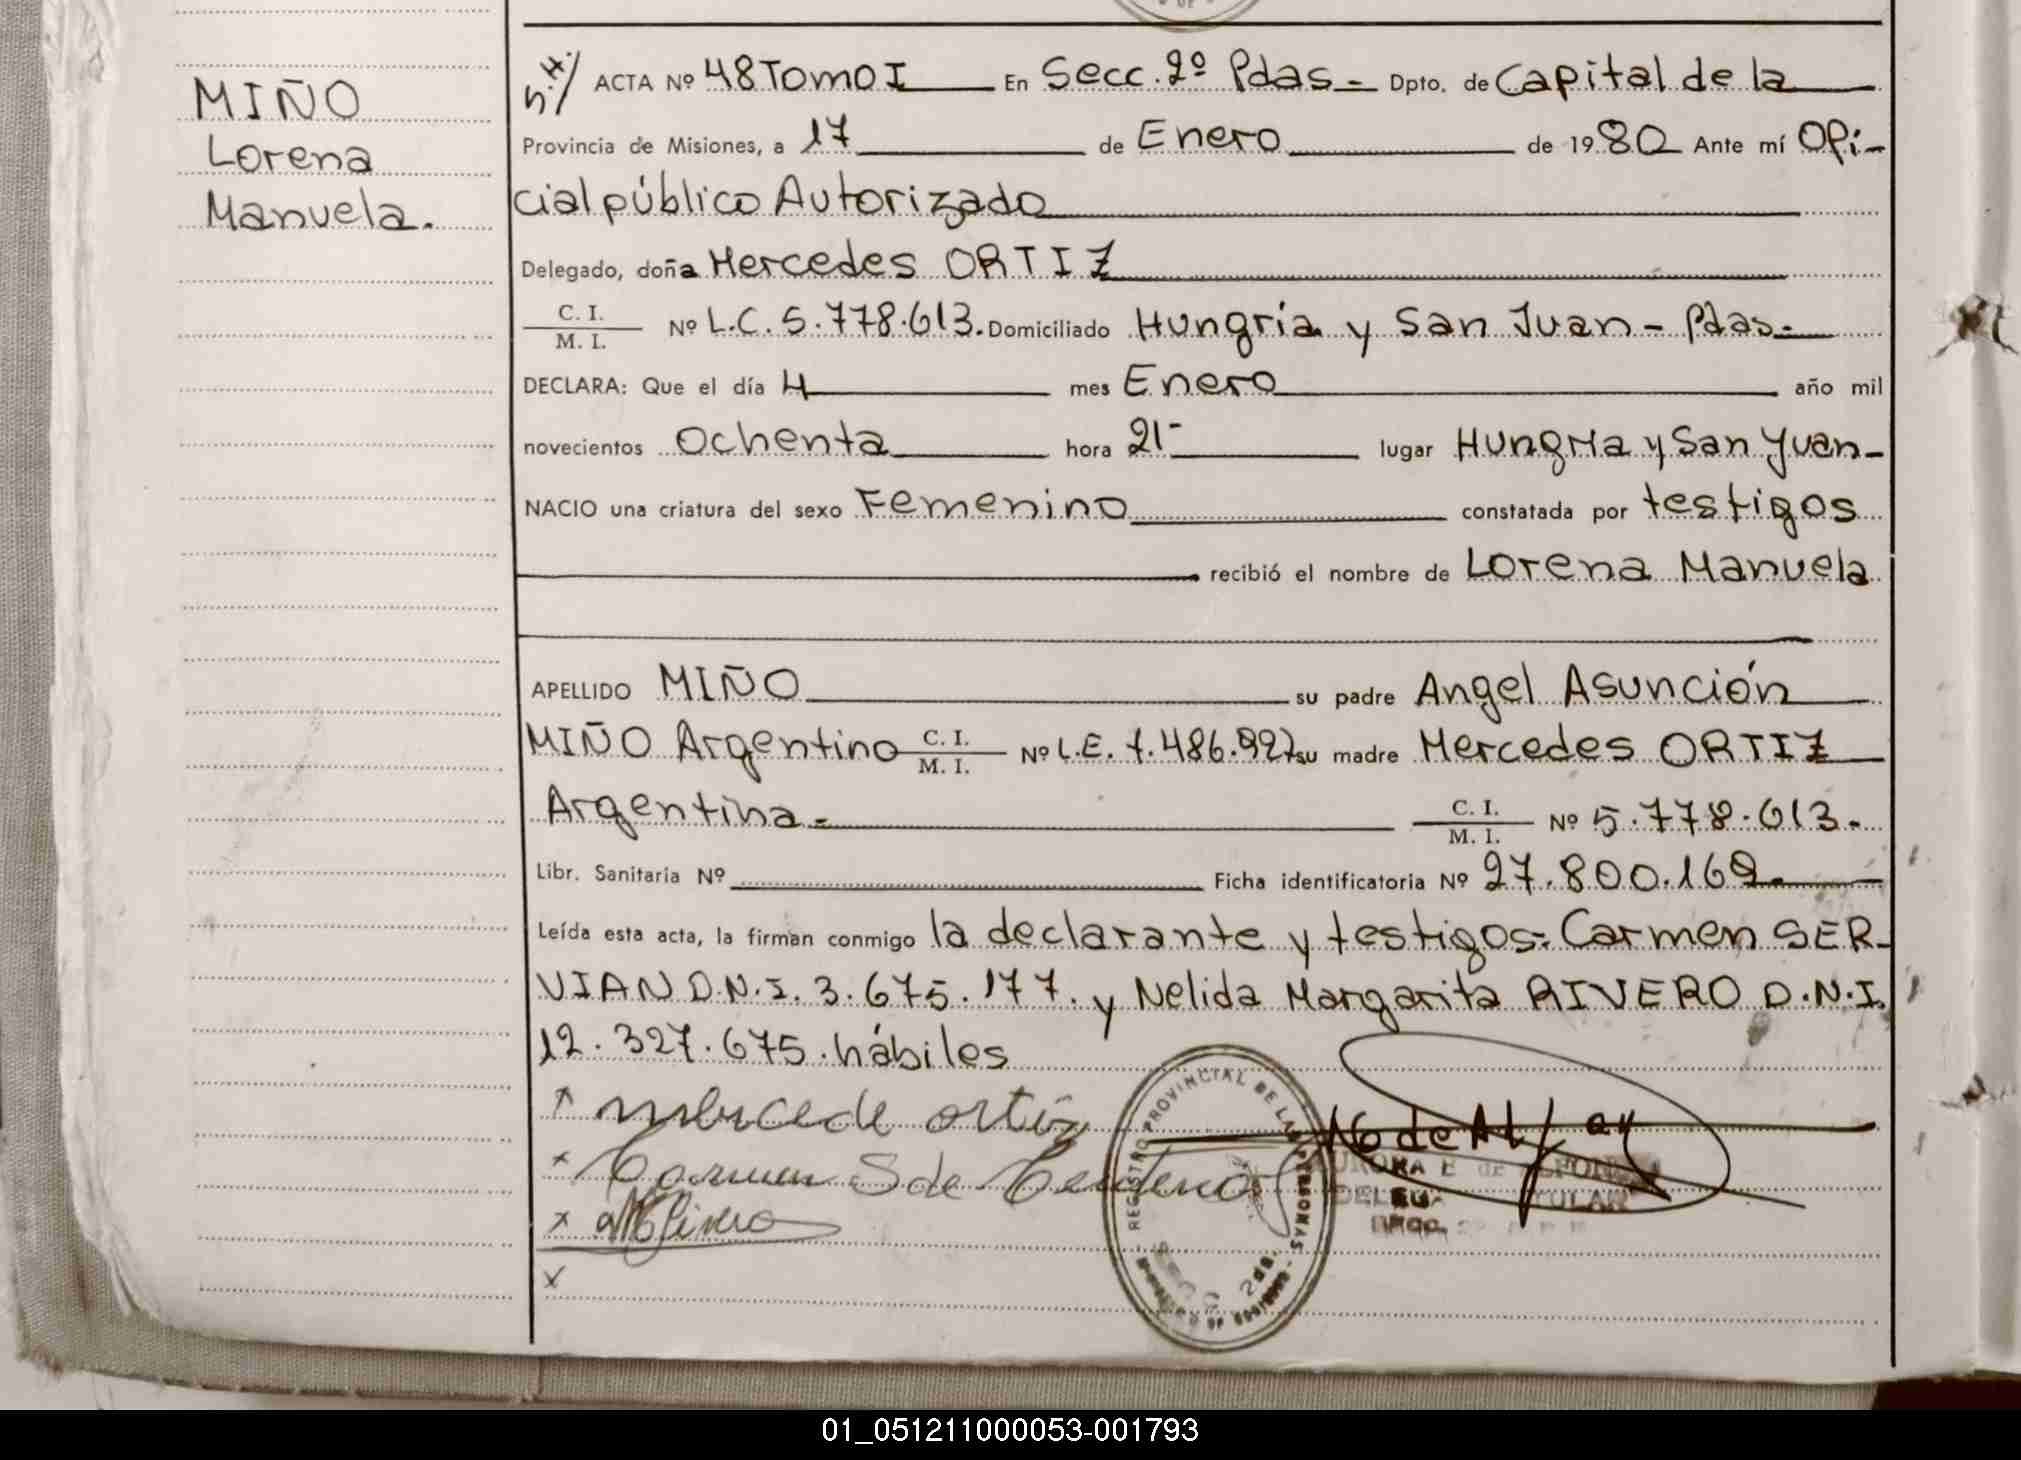 MIÑO
Lorena
Manuela.
S.H./ ACTA Nº 48 Tomo I En Secc. 2º Pdas - Dpto. de Capital de la
Provincia de Misiones, a 17 de Enero de 1980 Ante mí Ofi-
cial público Autorizado
Delegado, doña Mercedes ORTIZ
C. I.
M. I.
Nº L.C. 5.778.613. Domiciliado Hungría y San Juan - Pdas.-
DECLARA: Que el día 4 mes Enero año mil
novecientos Ochenta hora 21- lugar Hungria y San Juan-
NACIO una criatura del sexo Femenino constatada por testigos
recibió el nombre de Lorena Manuela
APELLIDO MIÑO su padre Angel Asunción
MIÑO Argentino C. I. M. I. Nº L.E. 7.486.927 su madre Mercedes ORTIZ
Argentina.- C. I. M. I. Nº 5.778.613.-
Libr. Sanitaria Nº Ficha identificatoria Nº 27.800.169.-
Leída esta acta, la firman conmigo la declarante y testigos: Carmen SER-
VIAN D.N.I. 3.675.177. y Nelida Margarita RIVERO D.N.I.
12.327.675. hábiles
x mercede ortiz
x Carmen S de Centeno
x NMRivero
x
REGISTRO PROVINCIAL DE LAS PERSONAS
01_051211000053-001793